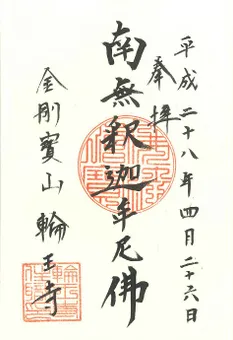 平成二十八年四月二十六日
奉拝
南無釈迦牟尼佛
金剛寳山輪王寺